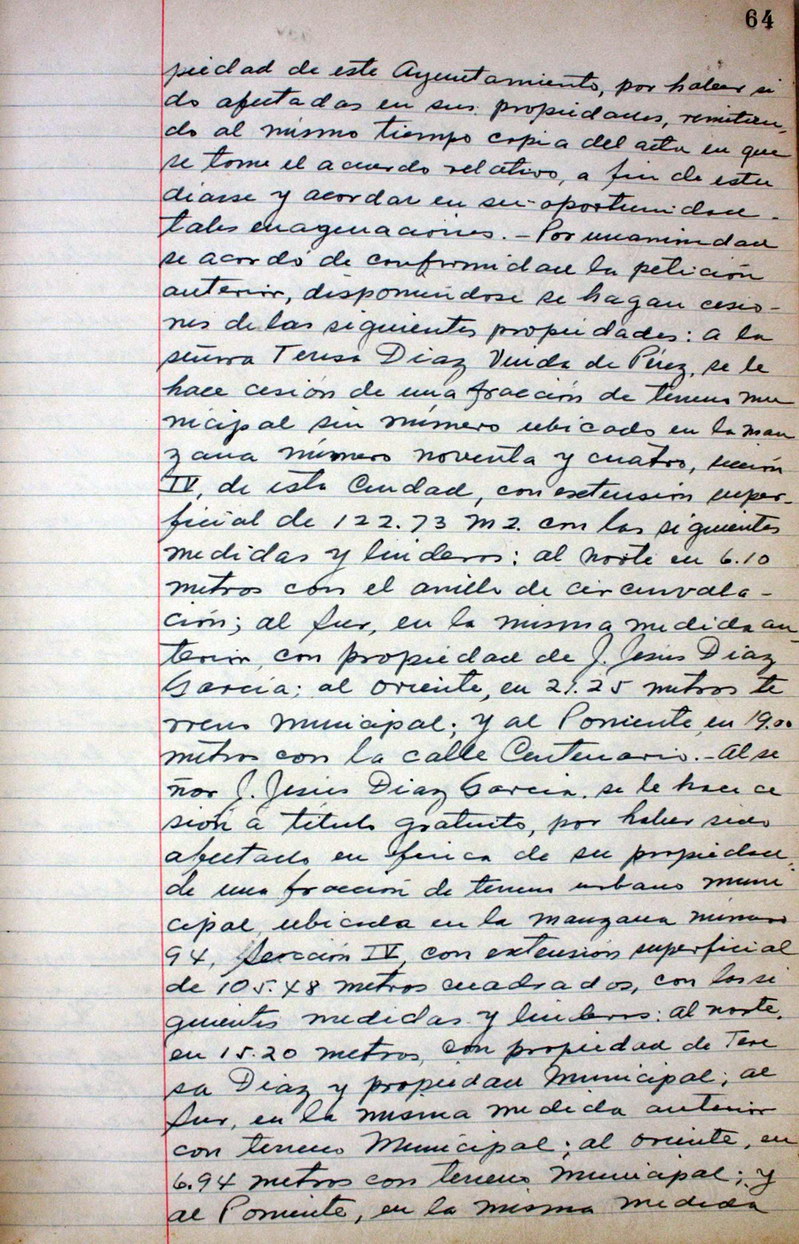 64
piedad de este Ayuntamiento, por haber si
do afectadas en sus propiedades, remitien,
do al mismo tiempo copia del acta en que
se tome el acuerdo relativo, a fin de estu
diarse y acordar en su oportunidad
tales enagenaciones. - Por unanimidad
se acordó de conformidad la petición
anterior, disponiendose se hagan cesio-
nes de las siguientes propiedades: a la
señora Teresa Diaz Viuda de Pérez, se le
hace cesión de una fracción de terreno mu
nicipal sin número ubicado en la man
zana número noventa y cuatro, sección
IV, de esta Ciudad, con extensión super-
ficial de 122.73 m2. con las siguientes
medidas y linderos: al norte en 6.10
metros con el anillo de circunvala-
ción; al Sur, en la misma medida an-
terior, con propiedad de J. Jesús Diaz
García; al oriente, en 21.25 metros te
rreno municipal; y al Poniente, en 19.00
metros con la calle Centenario. - Al se
ñor J. Jesús Diaz Garcia. se le hace ce
sión a título gratuito, por haber sido
afectado en finca de su propiedad.
de una fracción de terreno urbano muni
cipal, ubicada en la manzana número
94, Sección IV, con extensión superficial
de 105.48 metros cuadrados, con las si
guientes medidas y linderos: al norte,
en 15.20 metros, con propiedad de Tere
sa Diaz y propiedad Municipal; al
Sur, en la misma medida anterior
con terreno Municipal; al oriente, en
6.94 metros con terreno municipal; y
al Poniente, en la misma medida